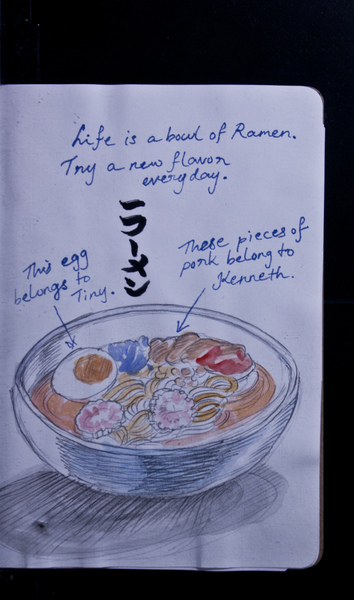 Life is a bowl of Ramen.
Try a new flavor
everyday.
ラーメン
This egg
belongs to
Tiny.
These pieces of
pork belong to
Kenneth.